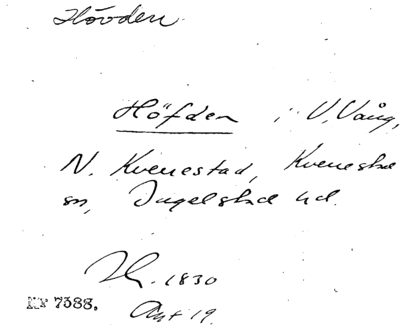 Hövden
Höfden i V. Vång,
N. Kvenestad, Kvenestad
sn, Ingelstad hd.
1830
Akt 19.
Nr 7388.